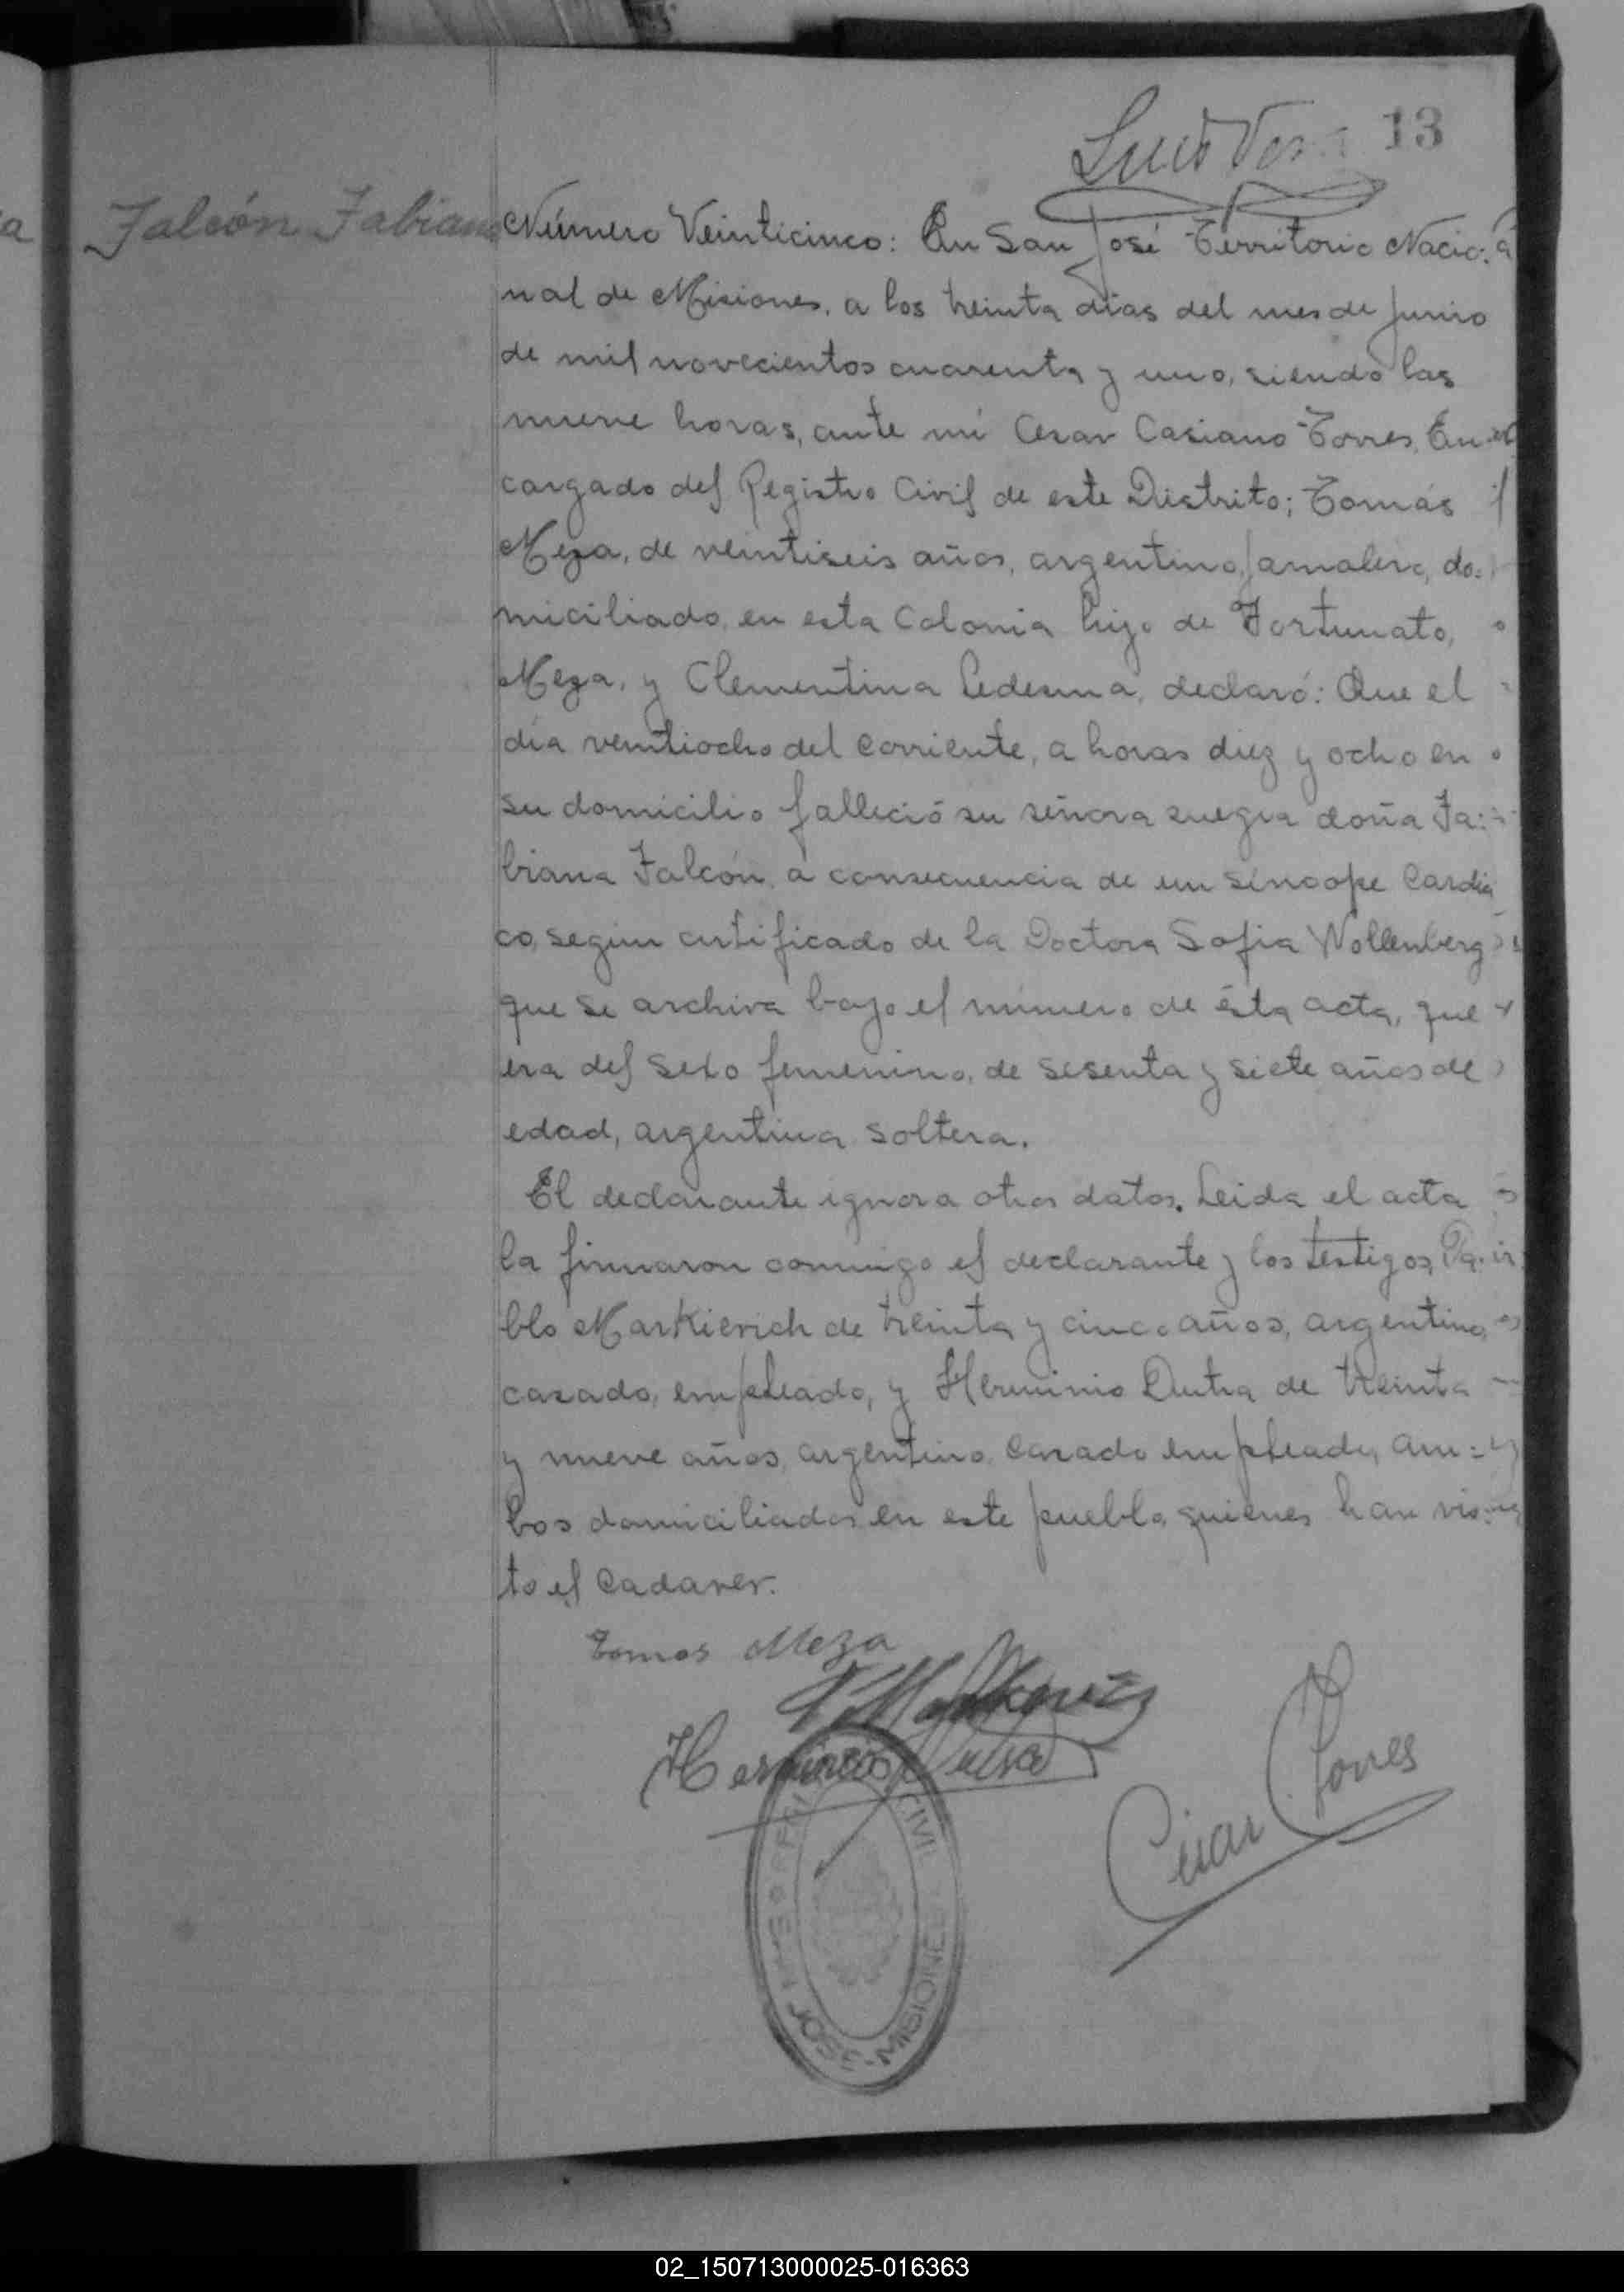 Luis Vera 13
Falcón Fabiana
Número Veinticinco: En San José Territorio Nacio:
nal de Misiones, a los treinta días del mes de Junio
de mil novecientos cuarenta y uno, siendo las
nueve horas, ante mí Cesar Casiano Torres, En
cargado del Registro Civil de este Distrito; Tomás
Meza, de veintiseis años, argentino, jornalero, do:
miciliado en esta Colonia hijo de Fortunato,
Meza, y Clementina Ledesma, declaró: Que el
día ventiocho del corriente, a horas diez y ocho en
su domicilio falleció su señora suegra doña Fa:
biana Falcón, a consecuencia de un síncope Cardia
co, segun certificado de la Doctora Sofia Wollenberg
que se archiva bajo el número de ésta acta, que
era del sexo femenino, de sesenta y siete años de
edad, argentina soltera.
El declarante ignora otros datos. Leida el acta
la firmaron conmigo el declarante y los testigos, Pa:
blo Markievich de treinta y cinco años, argentino,
casado, empleado, y Herminio Dutra de treinta
y nueve años, argentino, casado empleado, am:
bos domiciliados en este pueblo, quienes han vis:
to el cadaver.
Tomas Meza
P. Markievich
Herminio Dutra
Cesar C. Torres
CIVIL
JOSE-MISIONES
02_150713000025-016363